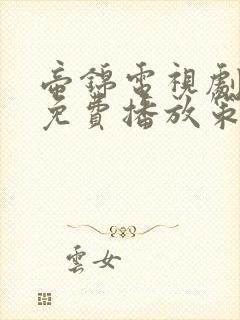 壺錦電視劇
免費播放策
雲女